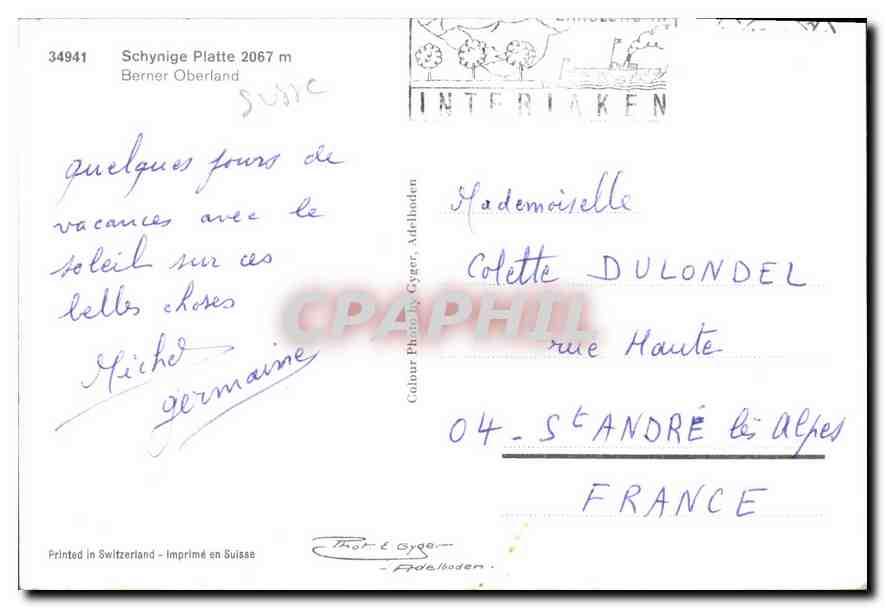 34941 Schynige Platte 2067 m
Berner Oberland
Suisse
INTERLAKEN
quelques jours de
vacances avec le
soleil sur ces
belles choses
Michel
germaine
Colour Photo by Gyger, Adelboden
Mademoiselle
Colette DULONDEL
rue Haute
04 - St ANDRÉ les Alpes
FRANCE
CPAPHIL
Printed in Switzerland - Imprimé en Suisse
Phot E Gyger
- Adelboden .